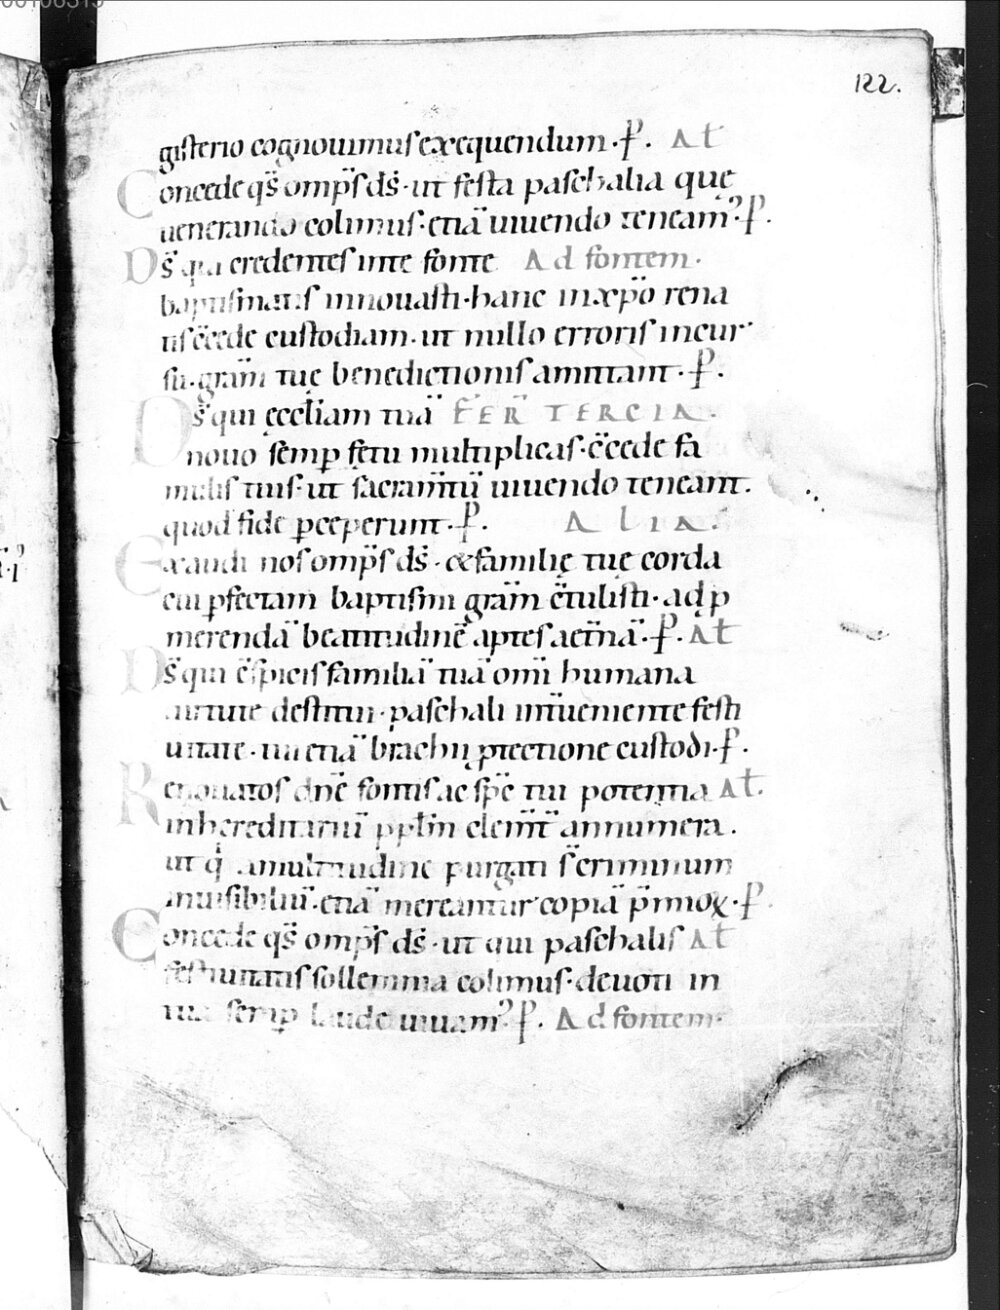 122.
gisterio cognouimus exequendum · p̄. Al̄
Concede q̄s omp̄s ds̄ · ut festa paschalia quę
uenerando colimus · etiā uiuendo teneam᾽ · p̄.
Ds̄ qui credentes in te fonte Ad fontem.
baptismatis innouasti · hanc in xp̄o rena
tis c̄cede custodiam · ut nullo erroris incur
su · grām tuę benedictionis amittant · p̄.
Ds̄ qui ęccl̄iam tuā FER̄ TERCIA.
nouo semp fetu multiplicas · c̄cede fa
mulis tuis · ut sacram̄tū uiuendo teneant.
quod fide p̱ceperunt · p̄. ALIA.
Exaudi nos omp̄s ds̄ · & familię tuę corda
cui p̱fectam baptismi grām c̄tulisti · ad p̱
merendā beatitudinē aptes aet̄nā · p̄. Al̄
Ds̄ qui c̄spicis familiā tuā om̄i humana
uirtute destitui · paschali int̄ueniente festi
uitate · tui etiā brachii p̱tectione custodi · p̄.
Renouatos dn̄e fontis ac sp̄c tui potentia Al̄.
in hereditariū pp̄lm clem̄t᾽ annumera.
ut q̇ a multitudine purgati s̄ criminum
inuisibiliū · etiā mereantur copiā p̄mioꝝ · p̄.
Concede q̄s omp̄s ds̄ · ut qui paschalis Al̄
festiuitatis sollemnia colimus · deuoti in
tua semp laude uiuam᾽ · p̄. Ad fontem.